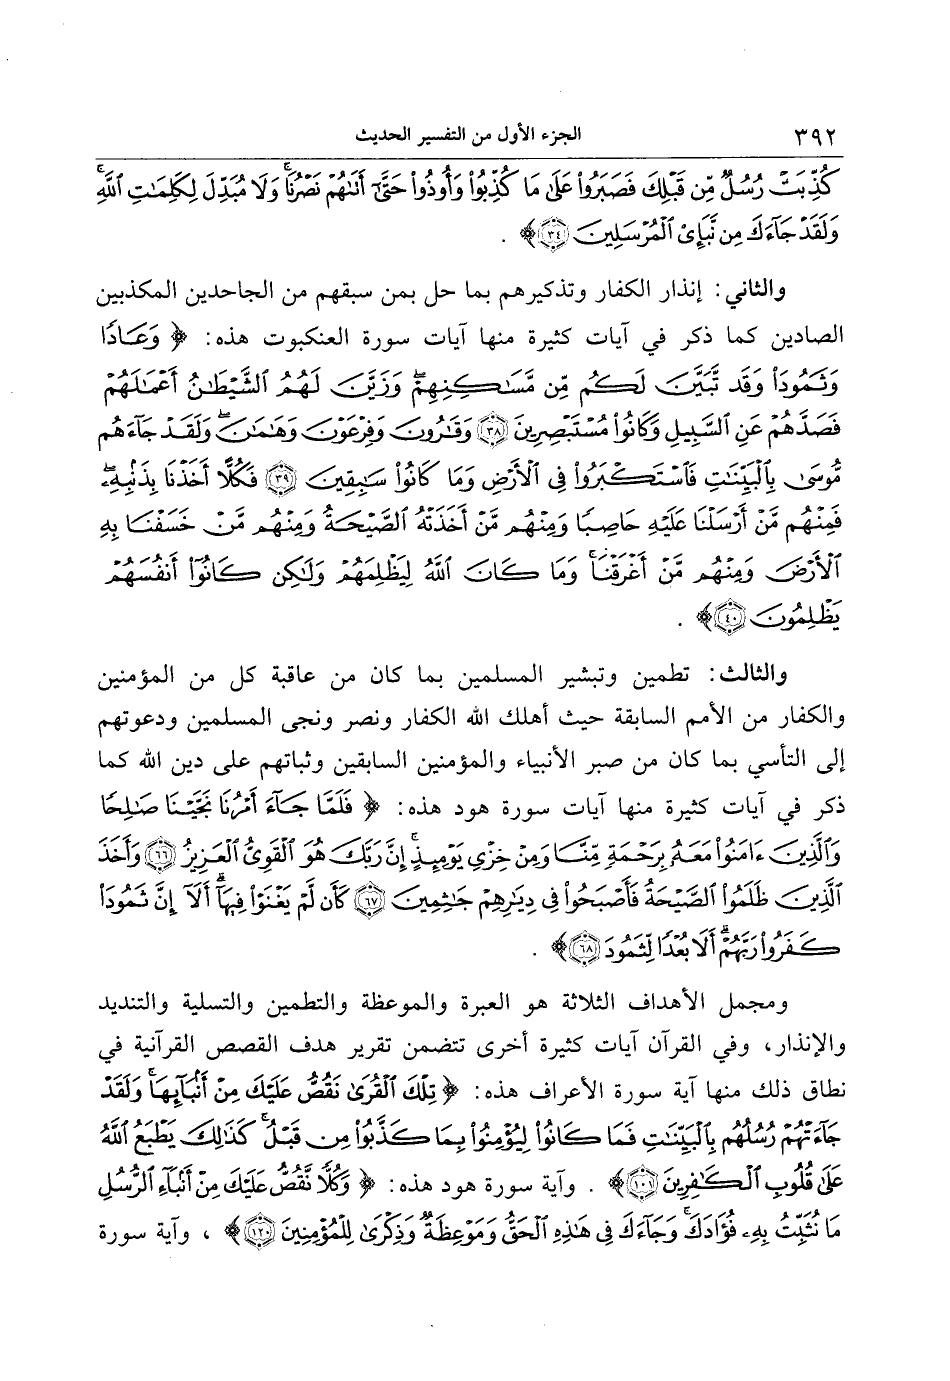 ٣٩٢ الجزء الأول من التفسير الحديث
كُذِّبَتْ رُسُلٌ مِّن قَبْلِكَ فَصَبَرُوا۟ عَلَىٰ مَا كُذِّبُوا۟ وَأُوذُوا۟ حَتَّىٰٓ أَتَىٰهُمْ نَصْرُنَا ۚ وَلَا مُبَدِّلَ لِكَلِمَٰتِ ٱللَّهِ ۚ
وَلَقَدْ جَآءَكَ مِن نَّبَإِى۟ ٱلْمُرْسَلِينَ ﴿٣٤﴾ ﴾ .
والثاني: إنذار الكفار وتذكيرهم بما حل بمن سبقهم من الجاحدين المكذبين
الصادين كما ذكر في آيات كثيرة منها آيات سورة العنكبوت هذه: ﴿ وَعَادًا
وَثَمُودَا۟ وَقَد تَّبَيَّنَ لَكُم مِّن مَّسَٰكِنِهِمْ ۖ وَزَيَّنَ لَهُمُ ٱلشَّيْطَٰنُ أَعْمَٰلَهُمْ
فَصَدَّهُمْ عَنِ ٱلسَّبِيلِ وَكَانُوا۟ مُسْتَبْصِرِينَ ﴿٣٨﴾ وَقَٰرُونَ وَفِرْعَوْنَ وَهَٰمَٰنَ ۖ وَلَقَدْ جَآءَهُم
مُّوسَىٰ بِٱلْبَيِّنَٰتِ فَٱسْتَكْبَرُوا۟ فِى ٱلْأَرْضِ وَمَا كَانُوا۟ سَٰبِقِينَ ﴿٣٩﴾ فَكُلًّا أَخَذْنَا بِذَنۢبِهِۦ ۖ
فَمِنْهُم مَّنْ أَرْسَلْنَا عَلَيْهِ حَاصِبًا وَمِنْهُم مَّنْ أَخَذَتْهُ ٱلصَّيْحَةُ وَمِنْهُم مَّنْ خَسَفْنَا بِهِ
ٱلْأَرْضَ وَمِنْهُم مَّنْ أَغْرَقْنَا ۚ وَمَا كَانَ ٱللَّهُ لِيَظْلِمَهُمْ وَلَٰكِن كَانُوٓا۟ أَنفُسَهُمْ
يَظْلِمُونَ ﴿٤٠﴾ ﴾ .
والثالث: تطمين وتبشير المسلمين بما كان من عاقبة كل من المؤمنين
والكفار من الأمم السابقة حيث أهلك الله الكفار ونصر ونجى المسلمين ودعوتهم
إلى التأسي بما كان من صبر الأنبياء والمؤمنين السابقين وثباتهم على دين الله كما
ذكر في آيات كثيرة منها آيات سورة هود هذه: ﴿ فَلَمَّا جَآءَ أَمْرُنَا نَجَّيْنَا صَٰلِحًا
وَٱلَّذِينَ ءَامَنُوا۟ مَعَهُۥ بِرَحْمَةٍ مِّنَّا وَمِنْ خِزْىِ يَوْمِئِذٍ ۗ إِنَّ رَبَّكَ هُوَ ٱلْقَوِىُّ ٱلْعَزِيزُ ﴿٦٦﴾ وَأَخَذَ
ٱلَّذِينَ ظَلَمُوا۟ ٱلصَّيْحَةُ فَأَصْبَحُوا۟ فِى دِيَٰرِهِمْ جَٰثِمِينَ ﴿٦٧﴾ كَأَن لَّمْ يَغْنَوْا۟ فِيهَآ ۗ أَلَآ إِنَّ ثَمُودَا۟
كَفَرُوا۟ رَبَّهُمْ ۗ أَلَا بُعْدًا لِّثَمُودَ ﴿٦٨﴾ ﴾ .
ومجمل الأهداف الثلاثة هو العبرة والموعظة والتطمين والتسلية والتنديد
والإنذار، وفي القرآن آيات كثيرة أخرى تتضمن تقرير هدف القصص القرآنية في
نطاق ذلك منها آية سورة الأعراف هذه: ﴿ تِلْكَ ٱلْقُرَىٰ نَقُصُّ عَلَيْكَ مِنْ أَنۢبَآئِهَا ۚ وَلَقَدْ
جَآءَتْهُمْ رُسُلُهُم بِٱلْبَيِّنَٰتِ فَمَا كَانُوا۟ لِيُؤْمِنُوا۟ بِمَا كَذَّبُوا۟ مِن قَبْلُ ۚ كَذَٰلِكَ يَطْبَعُ ٱللَّهُ
عَلَىٰ قُلُوبِ ٱلْكَٰفِرِينَ ﴿١٠١﴾ ﴾ . وآية سورة هود هذه: ﴿ وَكُلًّا نَّقُصُّ عَلَيْكَ مِنْ أَنۢبَآءِ ٱلرُّسُلِ
مَا نُثَبِّتُ بِهِۦ فُؤَادَكَ ۚ وَجَآءَكَ فِى هَٰذِهِ ٱلْحَقُّ وَمَوْعِظَةٌ وَذِكْرَىٰ لِلْمُؤْمِنِينَ ﴿١٢٠﴾ ﴾ ، وآية سورة